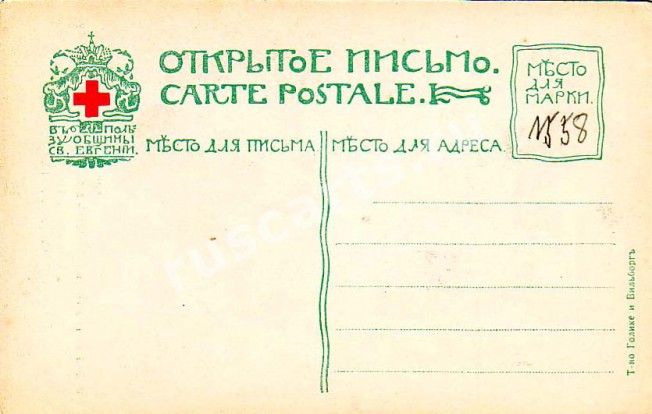 ОТКРЫТОЕ ПИСЬМО.
CARTE POSTALE.
МѢСТО
ДЛЯ
МАРКИ.
ВЪ ПОЛЬ
ЗУ ОБЩИНЫ
СВ. ЕВГЕНІИ.
МѢСТО ДЛЯ ПИСЬМА
МѢСТО ДЛЯ АДРЕСА.
Т-во Голике и Вильборгъ